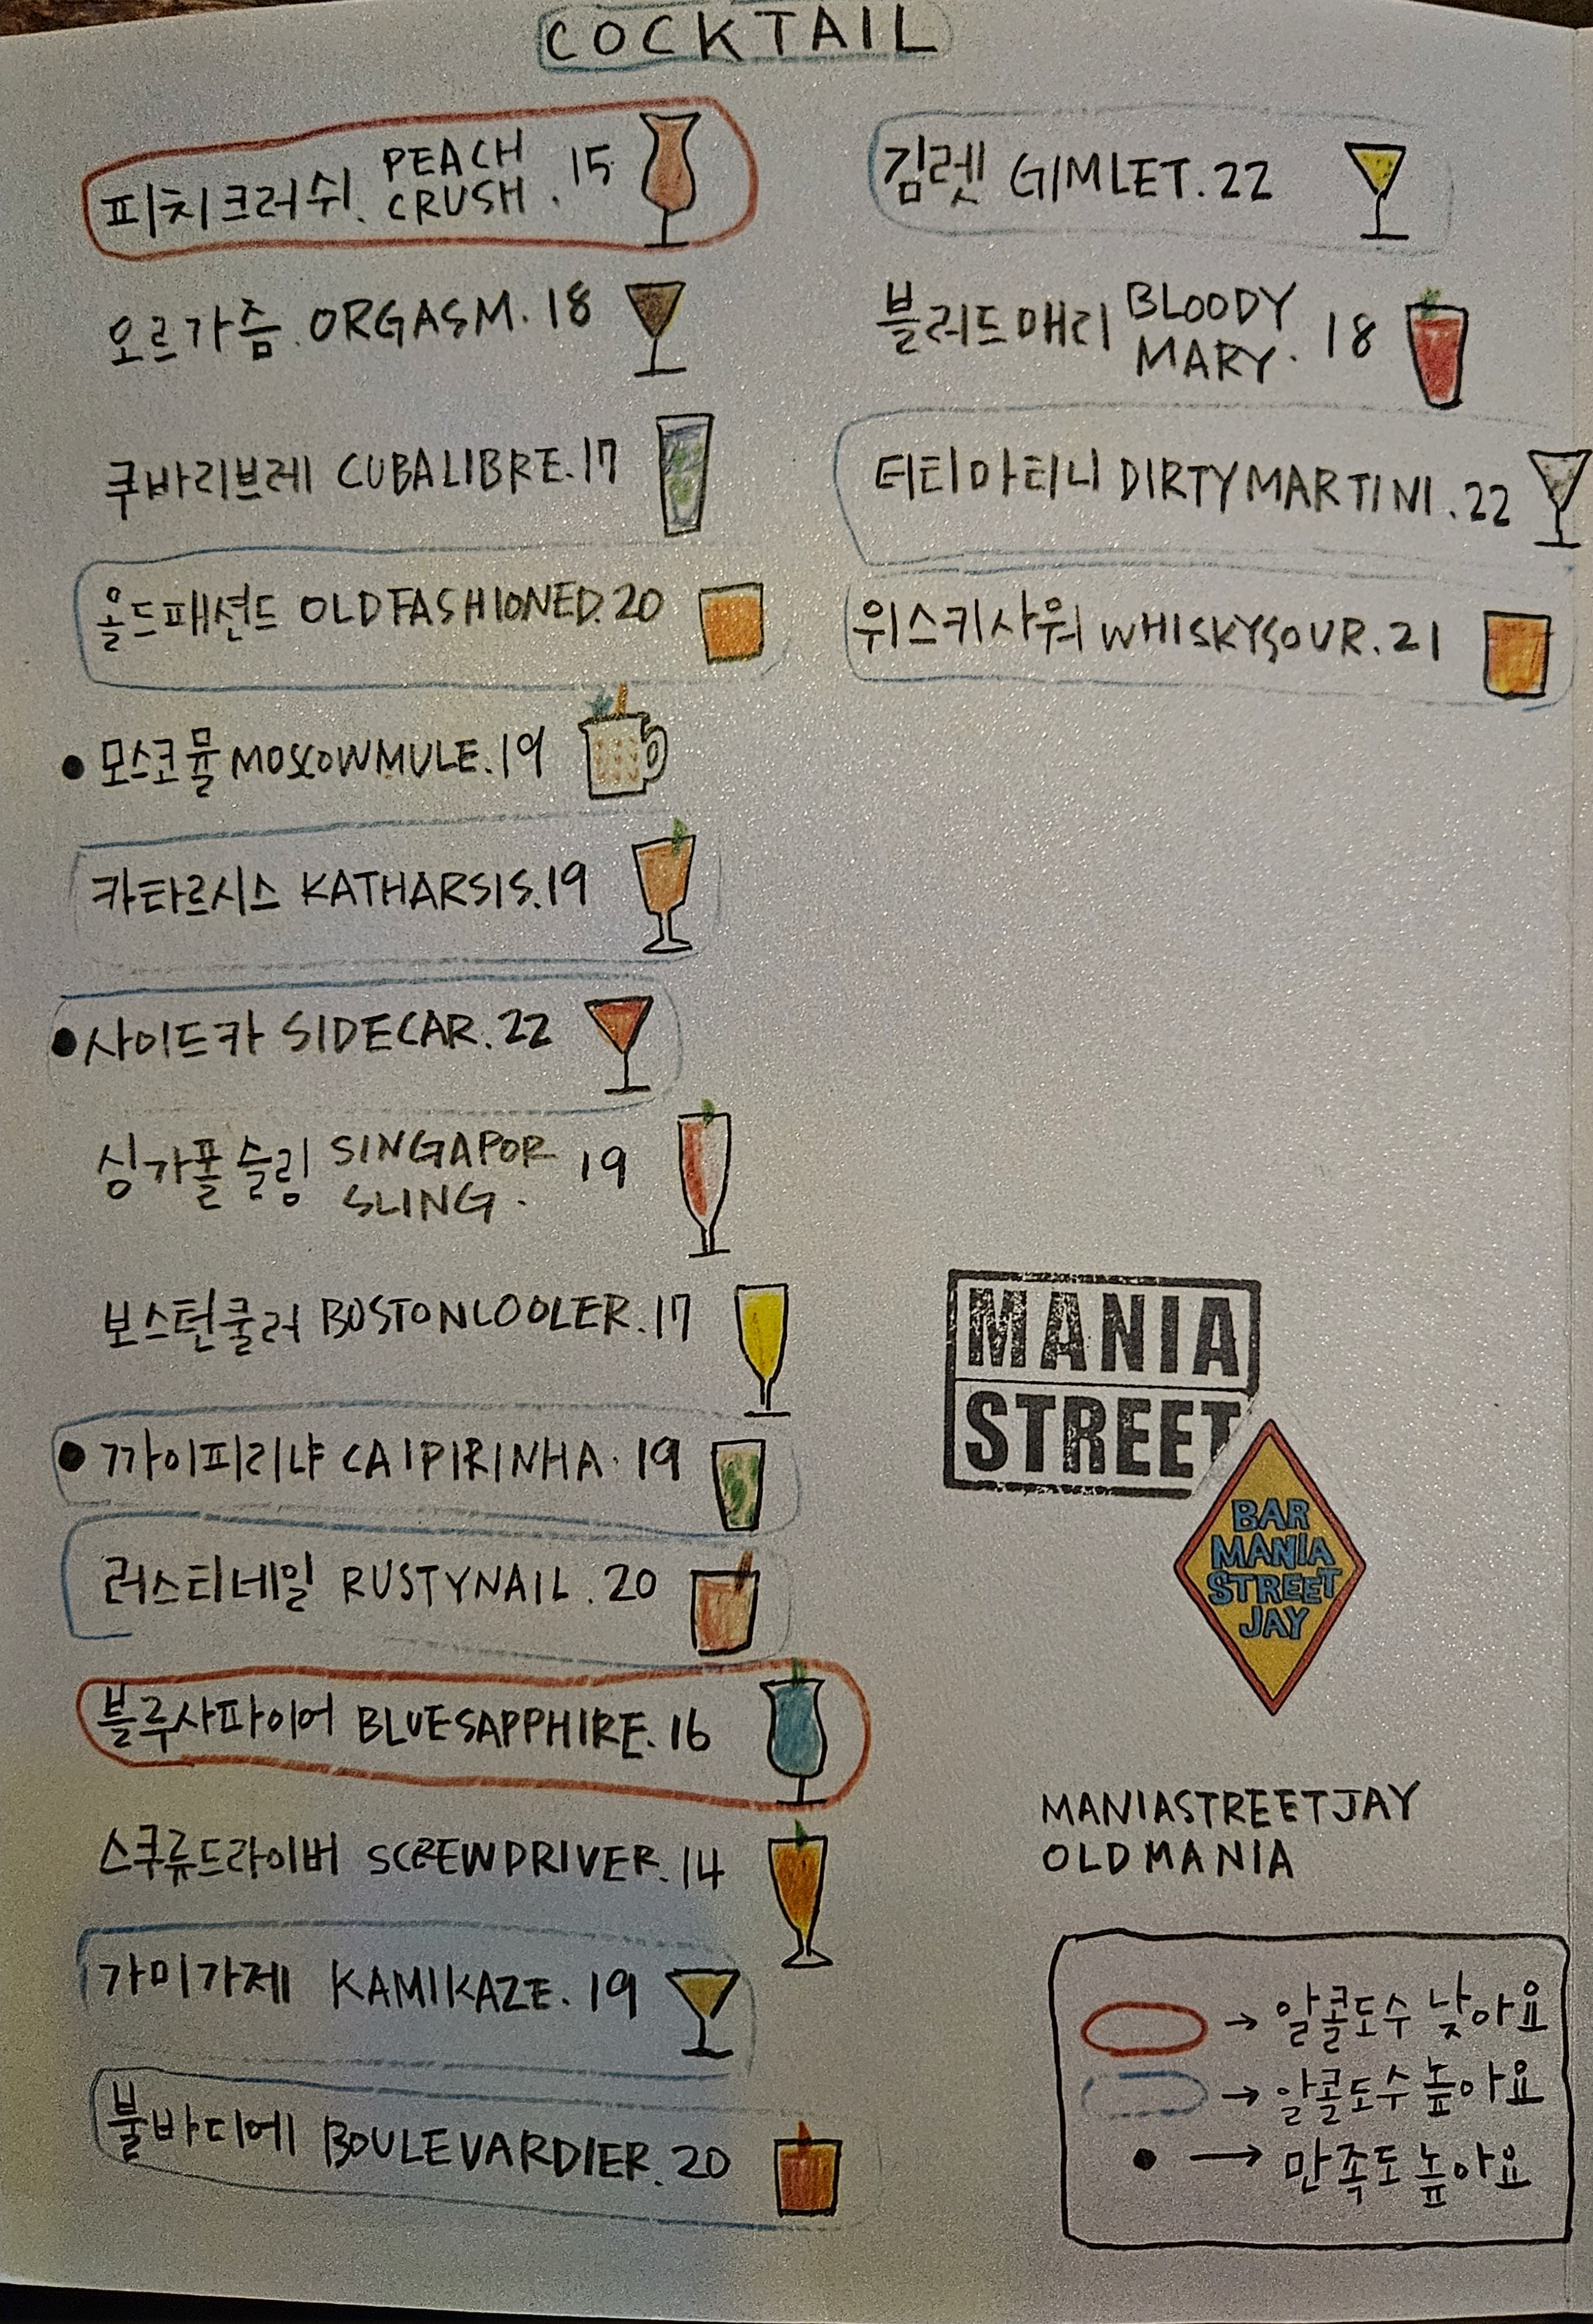 COCKTAIL
피치크러쉬. PEACH CRUSH. 15
오르가즘. ORGASM. 18
쿠바리브레 CUBALIBRE. 17
올드패션드 OLDFASHIONED. 20
• 모스코뮬 MOSCOWMULE. 19
카타르시스 KATHARSIS. 19
• 사이드카 SIDECAR. 22
싱가폴슬링 SINGAPOR SLING. 19
보스턴쿨러 BOSTONCOOLER. 17
• 까이피리냐 CAIPIRINHA. 19
러스티네일 RUSTYNAIL. 20
블루사파이어 BLUESAPPHIRE. 16
스쿠류드라이버 SCREWDRIVER. 14
가미가제 KAMIKAZE. 19
불바디에 BOULEVARDIER. 20
김렛 GIMLET. 22
블러드매리 BLOODY MARY. 18
더티마티니 DIRTYMARTINI. 22
위스키사워 WHISKYSOUR. 21
MANIA
STREET
BAR
MANIA
STREET
JAY
MANIASTREETJAY
OLDMANIA
→ 알콜도수 낮아요
→ 알콜도수 높아요
• → 만족도 높아요